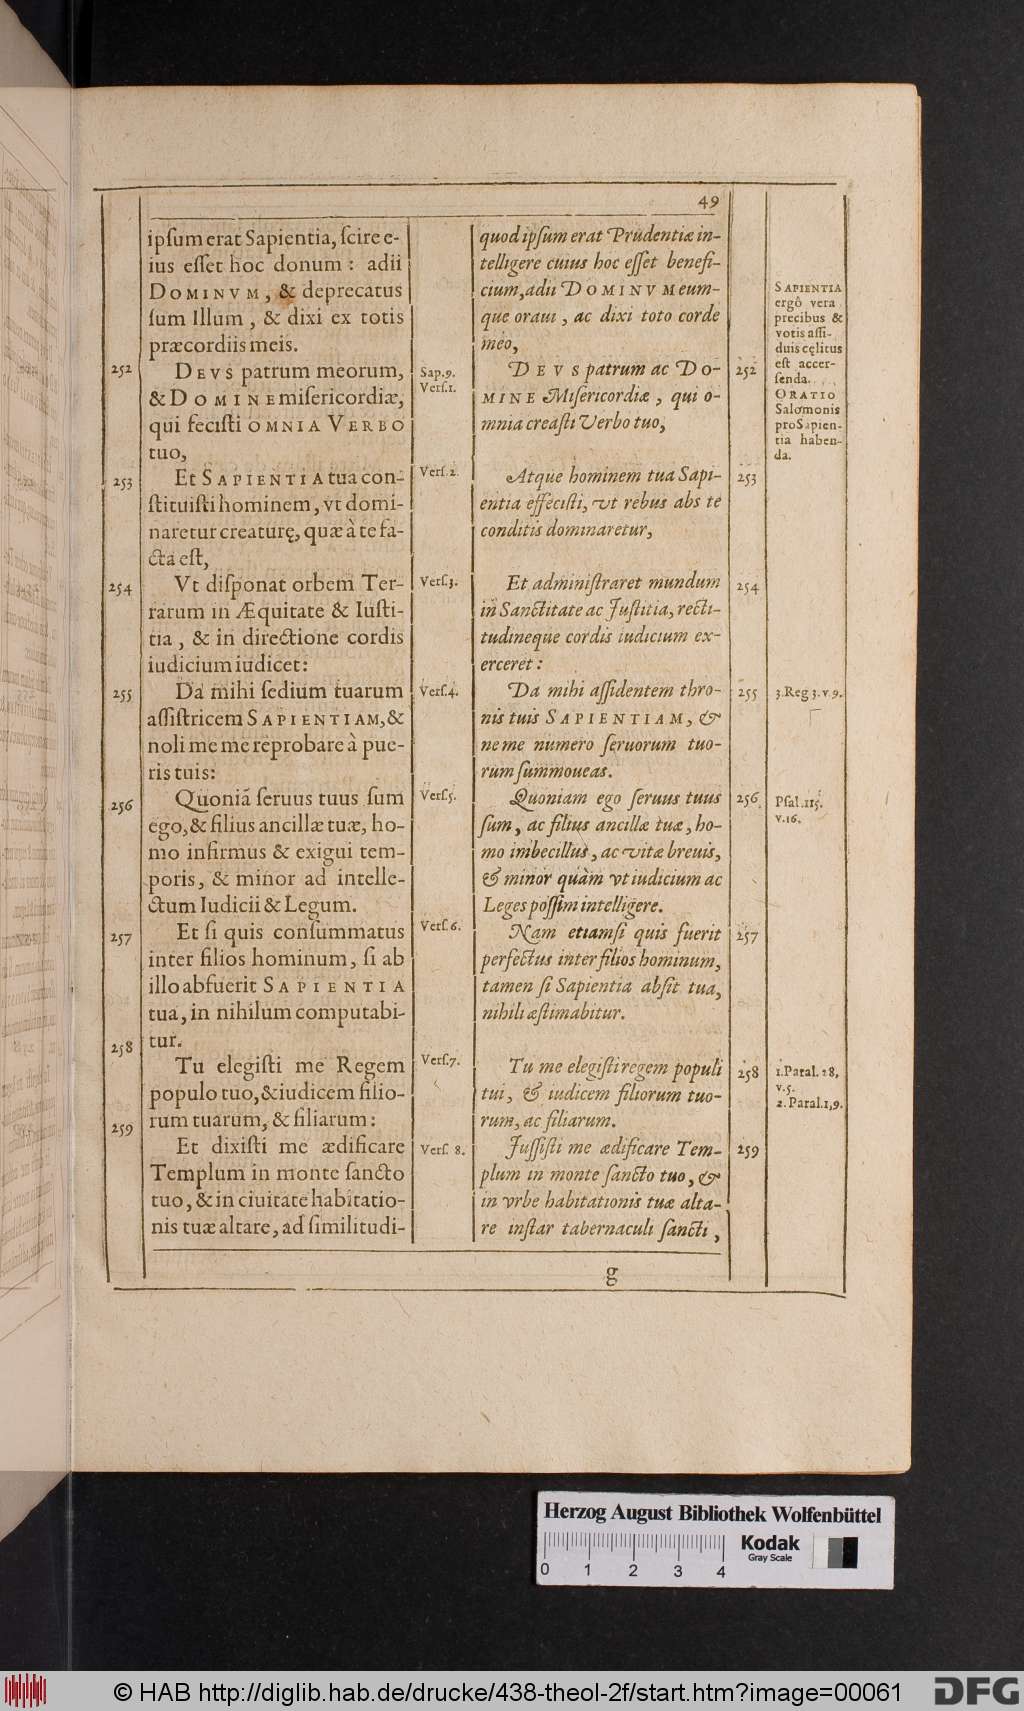 49
ipſum erat Sapientia, ſcire e-
ius eſſet hoc donum : adii
DOMINVM, & deprecatus
ſum Illum, & dixi ex totis
præcordiis meis.
252
DEVS patrum meorum,
& DOMINE miſericordiæ,
qui feciſti OMNIA VERBO
tuo,
253
Et SAPIENTIA tua con-
ſtituiſti hominem, vt domi-
naretur creaturę, quæ à te fa-
cta eſt,
254
Vt diſponat orbem Ter-
rarum in Æquitate & Iuſti-
tia, & in directione cordis
iudicium iudicet:
255
Da mihi ſedium tuarum
aſſiſtricem SAPIENTIAM, &
noli me me reprobare à pue-
ris tuis:
256
Quoniã ſeruus tuus ſum
ego, & filius ancillæ tuæ, ho-
mo infirmus & exigui tem-
poris, & minor ad intelle-
ctum Iudicii & Legum.
257
Et ſi quis conſummatus
inter filios hominum, ſi ab
illo abfuerit SAPIENTIA
tua, in nihilum computabi-
tur.
258
Tu elegiſti me Regem
populo tuo, & iudicem filio-
rum tuarum, & filiarum:
259
Et dixiſti me ædificare
Templum in monte ſancto
tuo, & in ciuitate habitatio-
nis tuæ altare, ad ſimilitudi-
Sap.9.
Verſ.1.
Verſ.2.
Verſ.3.
Verſ.4.
Verſ.5.
Verſ.6.
Verſ.7.
Verſ. 8.
quod ipſum erat Prudentiæ in-
telligere cuius hoc eſſet benefi-
cium, adii DOMINVM eum-
que oraui, ac dixi toto corde
meo,
DEVS patrum ac DO-
MINE Miſericordiæ, qui o-
mnia creaſti Verbo tuo,
Atque hominem tua Sapi-
entia effeciſti, vt rebus abs te
conditis dominaretur,
Et adminiſtraret mundum
in Sanctitate ac Juſtitia, recti-
tudineque cordis iudicium ex-
erceret:
Da mihi aſſidentem thro-
nis tuis SAPIENTIAM, &
ne me numero ſeruorum tuo-
rum ſummoueas.
Quoniam ego ſeruus tuus
ſum, ac filius ancillæ tuæ, ho-
mo imbecillus, ac vitæ breuis,
& minor quàm vt iudicium ac
Leges poſſim intelligere.
Nam etiamſi quis fuerit
perfectus inter filios hominum,
tamen ſi Sapientia abſit tua,
nihili æſtimabitur.
Tu me elegiſti regem populi
tui, & iudicem filiorum tuo-
rum, ac filiarum.
Juſſiſti me ædificare Tem-
plum in monte ſancto tuo, &
in vrbe habitationis tuæ alta-
re inſtar tabernaculi ſancti,
252
253
254
255
256
257
258
259
SAPIENTIA
ergô vera
precibus &
votis aſſi-
duis cęlitus
eſt accer-
ſenda.
ORATIO
Salomonis
pro Sapien-
tia haben-
da.
3.Reg 3.v.9.
Pſal.115.
v.16.
1.Paral.28,
v.5.
2.Paral.1,9.
g
Herzog August Bibliothek Wolfenbüttel
Kodak
Gray Scale
0 1 2 3 4
© HAB http://diglib.hab.de/drucke/438-theol-2f/start.htm?image=00061
DFG